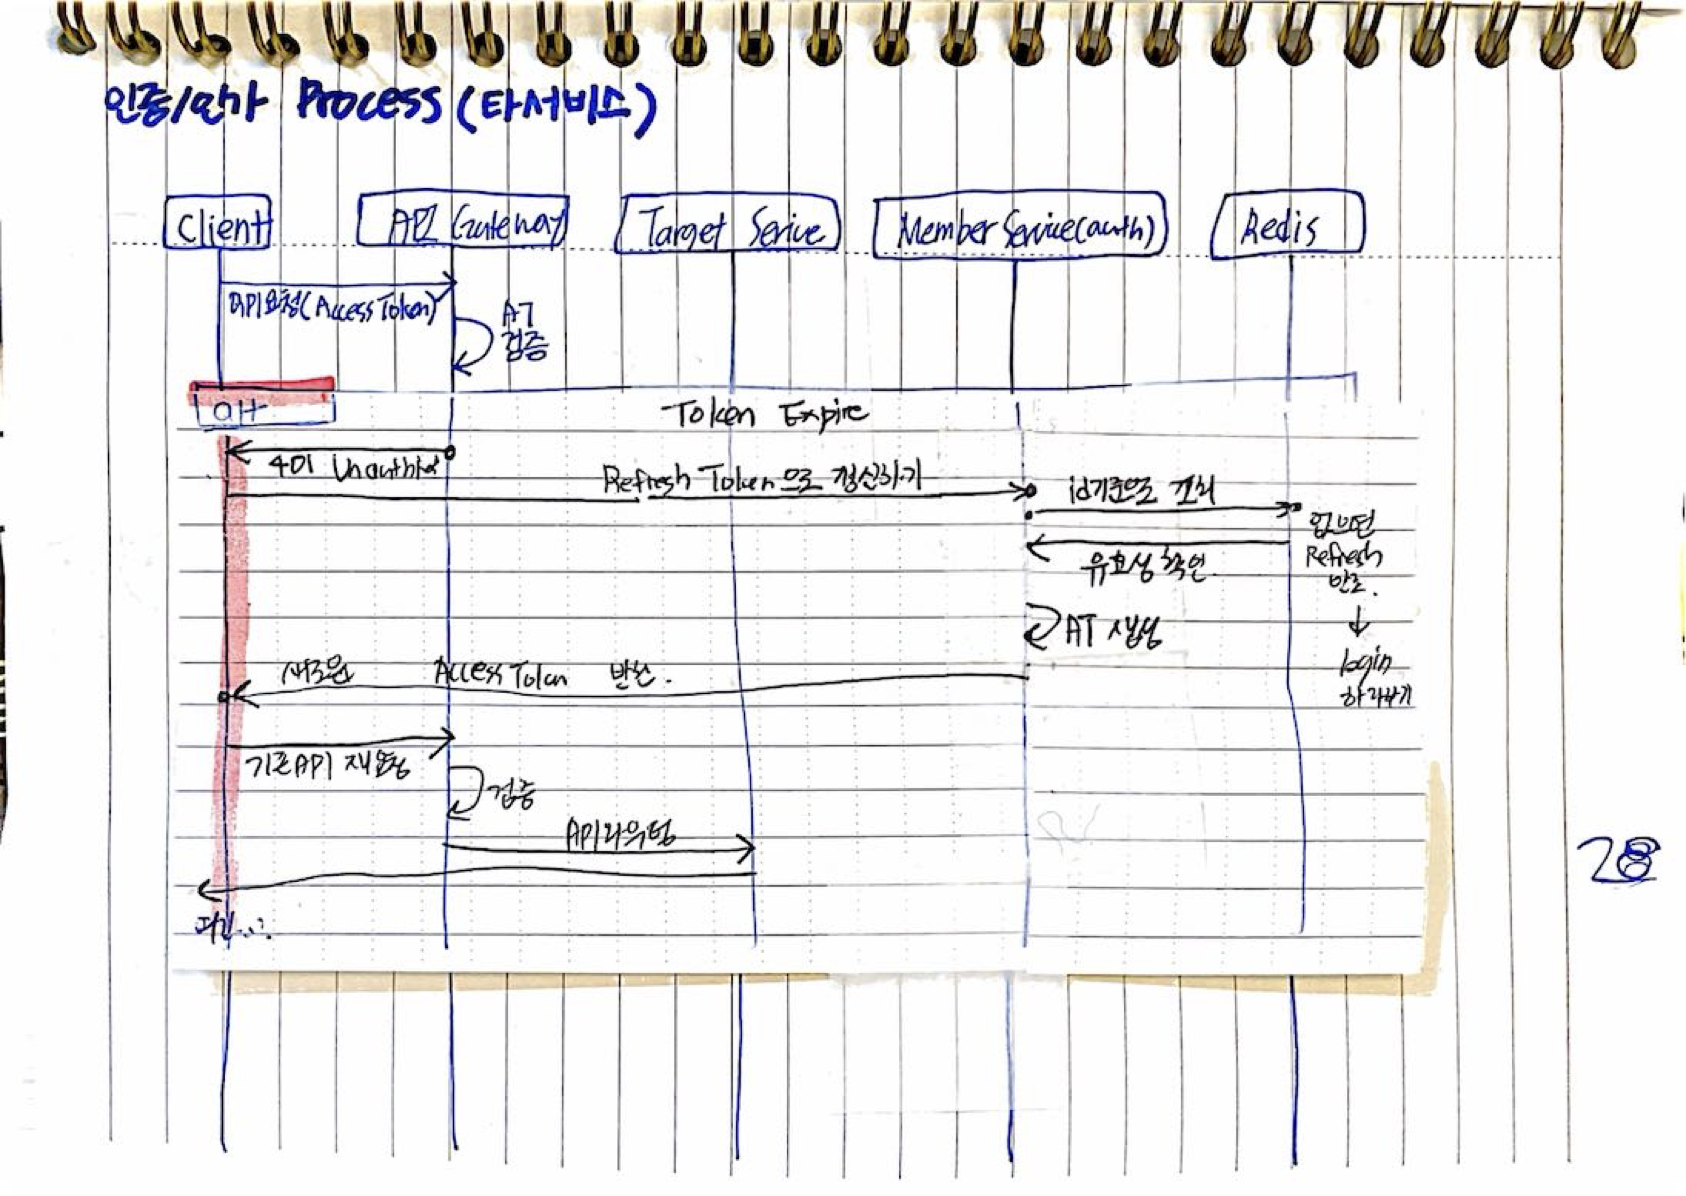 인증/인가 Process (타서비스)
Client
API Gateway
Target Serive
Member Service(auth)
Redis
API요청(Access Token)
AT
검증
alt
Token Expire
401 Unauthriz
Refresh Token으로 갱신하기
id기준으로 조회
없으면
Refresh
만료.
↓
login
하라하기
유효성 확인
AT 재생성
새로운 Access Token 반환.
기존API 재요청
검증
API라우팅
28